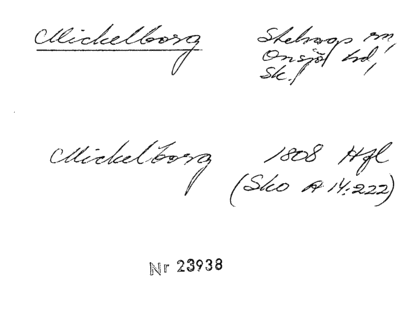 Mickelborg
Skelrops sn,
Onsjö hd,
Sk.
Mickelborg 1808 Hfl
(Sko A 14:222)
Nr 23938